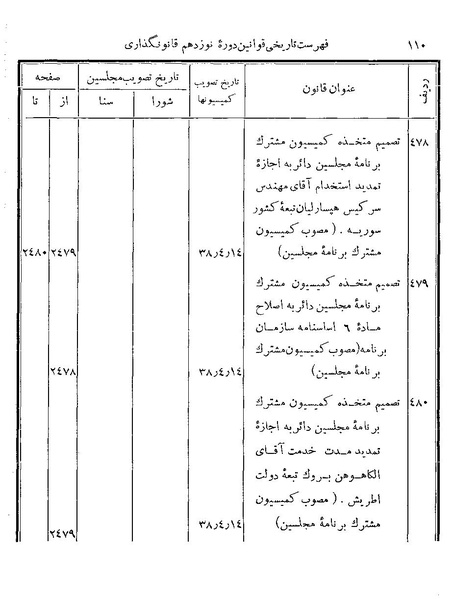 فهرست تاریخی قوانین دورهٔ نوزدهم قانونگذاری ۱۱۰
ردیف عنوان قانون تاریخ تصویب کمیسیونها تاریخ تصویب مجلسین صفحه
شورا سنا از تا
۴۷۸ تصمیم متخـذه کمیسیون مشترك
برنامهٔ مجلسین دائر به اجازهٔ
تمدید استخدام آقای مهندس
سرکیس هیسارلیان تبعهٔ کشور
سوریـه . ( مصوب کمیسیون
مشترك برنامهٔ مجلسین) ۳۸٫۴٫۱۴ ۲۴۷۹ ۲۴۸۰
۴۷۹ تصمیم متخـذه کمیسیون مشترك
برنامهٔ مجلسین دائر به اصلاح
مـادهٔ ۶ اساسنامه سازمـان
برنامه(مصوب کمیسیون مشترك
برنامهٔ مجلسین) ۳۸٫۴٫۱۴ ۲۴۷۸
۴۸۰ تصمیم متخـذه کمیسیون مشترك
برنامهٔ مجلسین دائر به اجازهٔ
تمدید مـدت خدمت آقـای
الکاهـوهن بـروك تبعهٔ دولت
اطریش . ( مصوب کمیسیون
مشترك برنامهٔ مجلسین) ۳۸٫۴٫۱۴ ۲۴۷۹